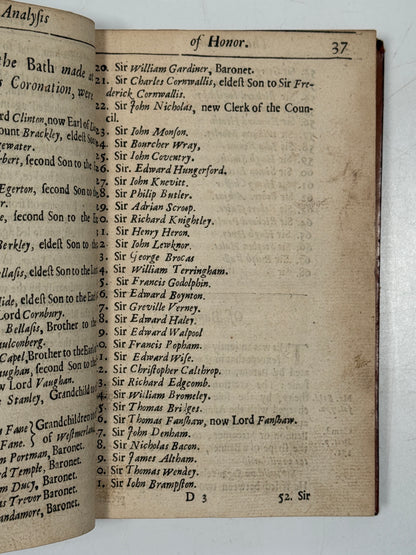 Analyſis
the Bath made at
s Coronation, were
rd Clinton, now Earl of
ount Brackley, eldeſt
gewater.
erbert, ſecond Son to the
Egerton, ſecond Son to the
e, ſecond Son to the Ea
Berkley, eldeſt Son to the
ellaſis, eldeſt Son to the
ide, eldeſt Son to the Ea
Lord Cornbury.
Bellaſis, Brother to the
aulconberg.
Capel, Brother to the
aughan, ſecond Son to the
w Lord Vaughan.
e Stanley, Grandchild to
s Fane } Grandchildren
Fane. } of Weſtmerl
m Portman, Baronet.
rd Temple, Baronet.
m Ducy, Baronet.
is Trevor Baronet.
andamore, Baronet.
of Honor. 37
20. Sir William Gardiner, Baronet.
21. Sir Charles Cornwallis, eldeſt Son to Sir Fre-
derick Cornwallis.
22. Sir John Nicholas, new Clerk of the Coun-
cil.
23. Sir Iohn Monſon.
24. Sir Bourcher Wray,
25. Sir Iohn Coventry.
26. Sir. Edward Hungerford.
27. Sir Iohn Knevitt.
28. Sir Philip Butler.
29. Sir Adrian Scroep.
0. Sir Richard Knightley.
1. Sir Henry Heron.
2. Sir Iohn Lewknor.
3. Sir George Brocas
4. Sir William Terringham.
5. Sir Francis Godolphin.
6. Sir Edward Boynton.
7. Sir Greville Verney.
8. Sir Edward Haley.
9. Sir Edward Walpool
0. Sir Francis Popham.
1. Sir Edward Wiſe.
2. Sir Chriſtopher Calthrop.
3. Sir Richard Edgcomb.
4. Sir William Bromeley.
5. Sir Thomas Bridges.
6. Sir Thomas Fanſhaw, now Lord Fanſhaw.
7. Sir John Denham.
8. Sir Nicholas Bacon.
9. Sir James Altham.
0. Sir Thomas Wendey.
1. Sir Iohn Brampſton.
D 3 52. Sir